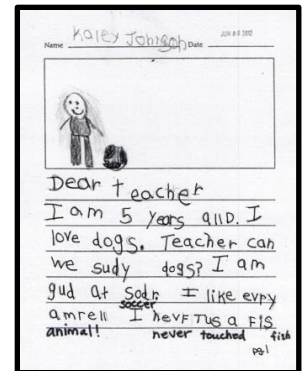 Name Kaley Johnson Date JUN 06 2012
Dear teacher
I am 5 years allD. I
love dogs. Teacher can
we sudy dogs? I am
gud at Sodr. I like evry
soccer
amrell I hevF Tus a Fis
animal! never touched fish
pg 1